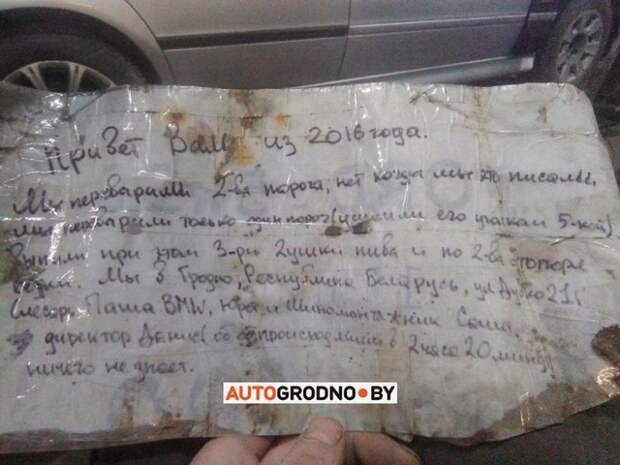 Привет Вам из 2016 года.
Мы переварили 2-ва порога, нет когда мы это писали
мы переварили только один порог (усилили его уголком 5-кой)
Выпили при этом 3-ри 2ушки пива и по 2-ва
водки. Мы в Гродно, Республика Беларусь, ул
слесарь Паша BMW, Юра и Шиномонтажник Саша,
директор Денис о происходящем в 2 часа 20 минут
ничего не знает.
AUTOGRODNO.BY